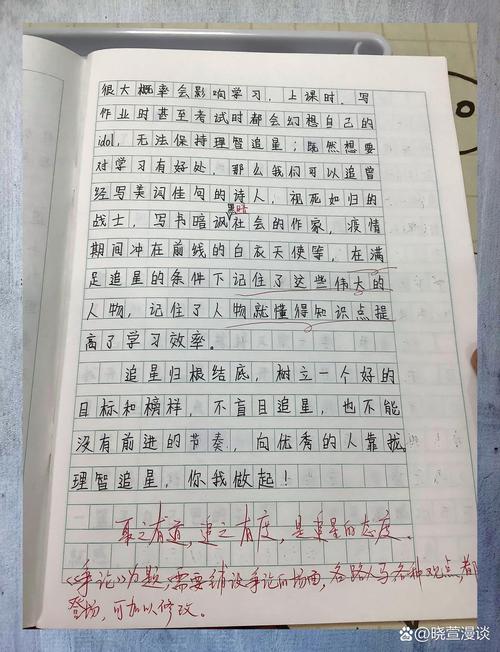 很大概率会影响学习，上课时，写
作业时甚至考试时都会幻想自己的
idol，无法保持理智追星；既然想要
对学习有好处，那么我们可以追曾
经写美词佳句的诗人，视死如归的
黑暗
战士，写书暗讽社会的作家，疫情
期间冲在前线的白衣天使等，在满
足追星的条件下记住了这些伟大的
人物，记住了人物就懂得知识点提
高了学习效率。
追星归根结底，树立一个好的
目标和榜样，不盲目追星，也不能
没有前进的节奏，向优秀的人靠拢
理智追星，你我做起！
取之有道，追之有度，是追星的态度.
《争论》为题，需要铺设争论的场面，各路人马各种观点，都
登场，可加以修改。
@晓萱漫谈